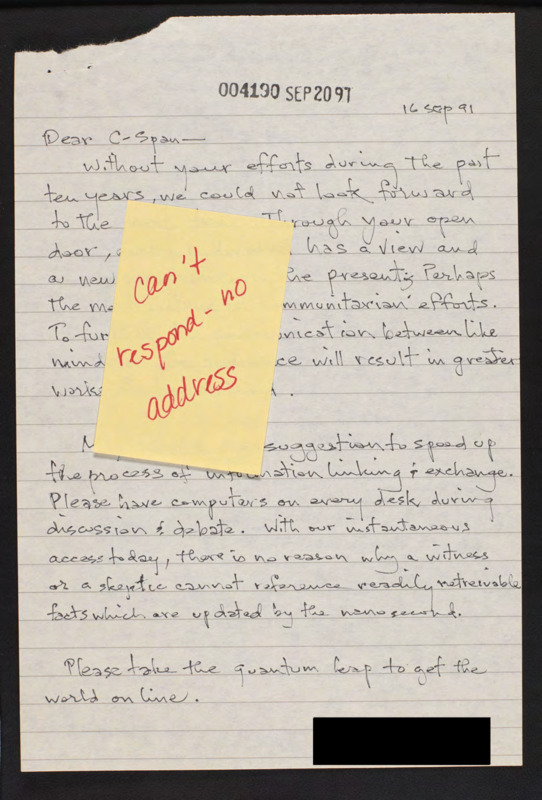 004190 SEP 20 97
16 Sep 91
Dear C-Span—
Without your efforts during the past
ten years, we could not look forward
to the Through your open
door, has a view and
a new the present; Perhaps
the mmunitarian efforts.
To fur nication between like
mind ce will result in greater
works
suggestion to speed up
the process of information linking & exchange.
Please have computers on every desk, during
discussion & debate. With our instantaneous
access today, there is no reason why a witness
or a skeptic cannot reference readily retreivable
facts which are updated by the nanosecond.
Please take the quantum leap to get the
world on line.
can't
respond - no
address